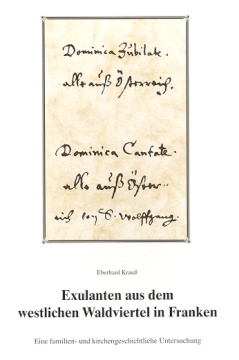 Dominica Jubilate.
alle auß Österreich.
Dominica Cantate.
alle auß Öster-
reich von S. Wolffgang.
Eberhard Krauß
Exulanten aus dem
westlichen Waldviertel in Franken
Eine familien- und kirchengeschichtliche Untersuchung